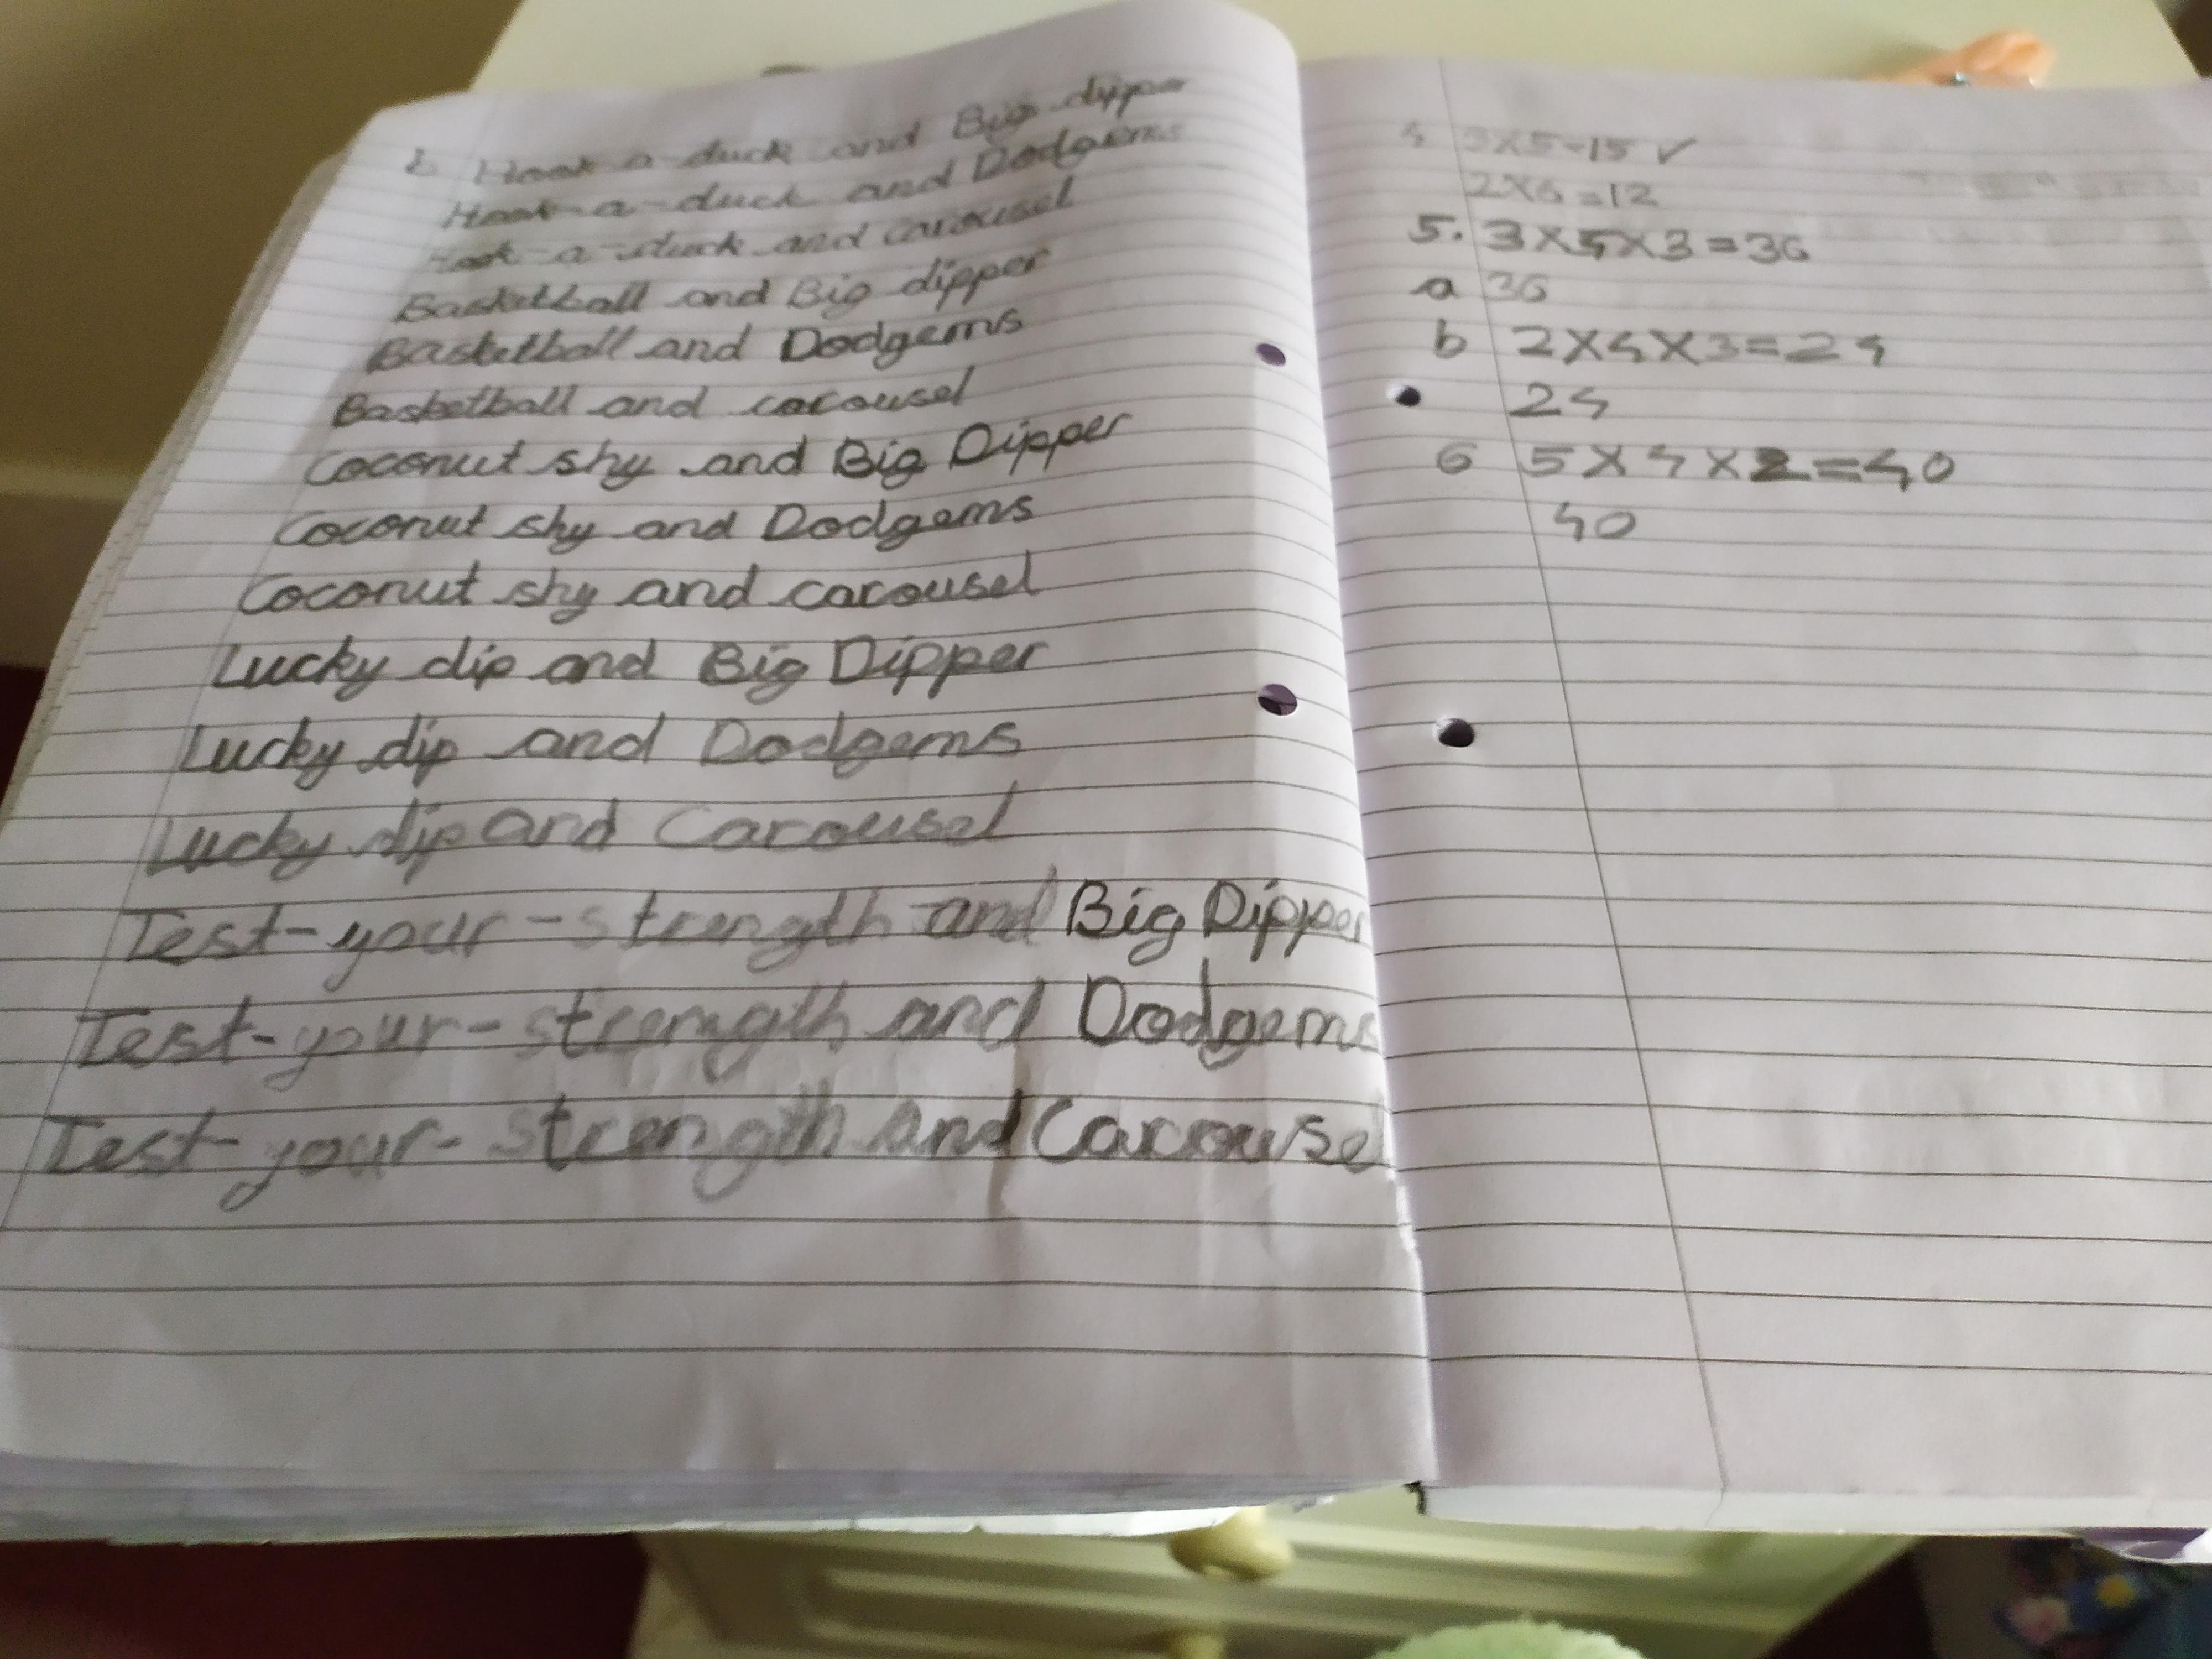 b Hook-a-duck and Big dipper
Hook-a-duck and Dodgems
Hook-a-duck and carousel
Basketball and Big dipper
Basketball and Dodgems
Basketball and carousel
Coconut shy and Big Dipper
Coconut shy and Dodgems
Coconut shy and carousel
Lucky dip and Big Dipper
Lucky dip and Dodgems
Lucky dip and Carousel
Test-your-strength and Big Dipper
Test-your-strength and Dodgems
Test-your-strength and Carousel
4 3x5=15 ✓
2x6=12
5. 3x4x3=36
a 36
b 2x4x3=24
24
6 5x4x2=40
40